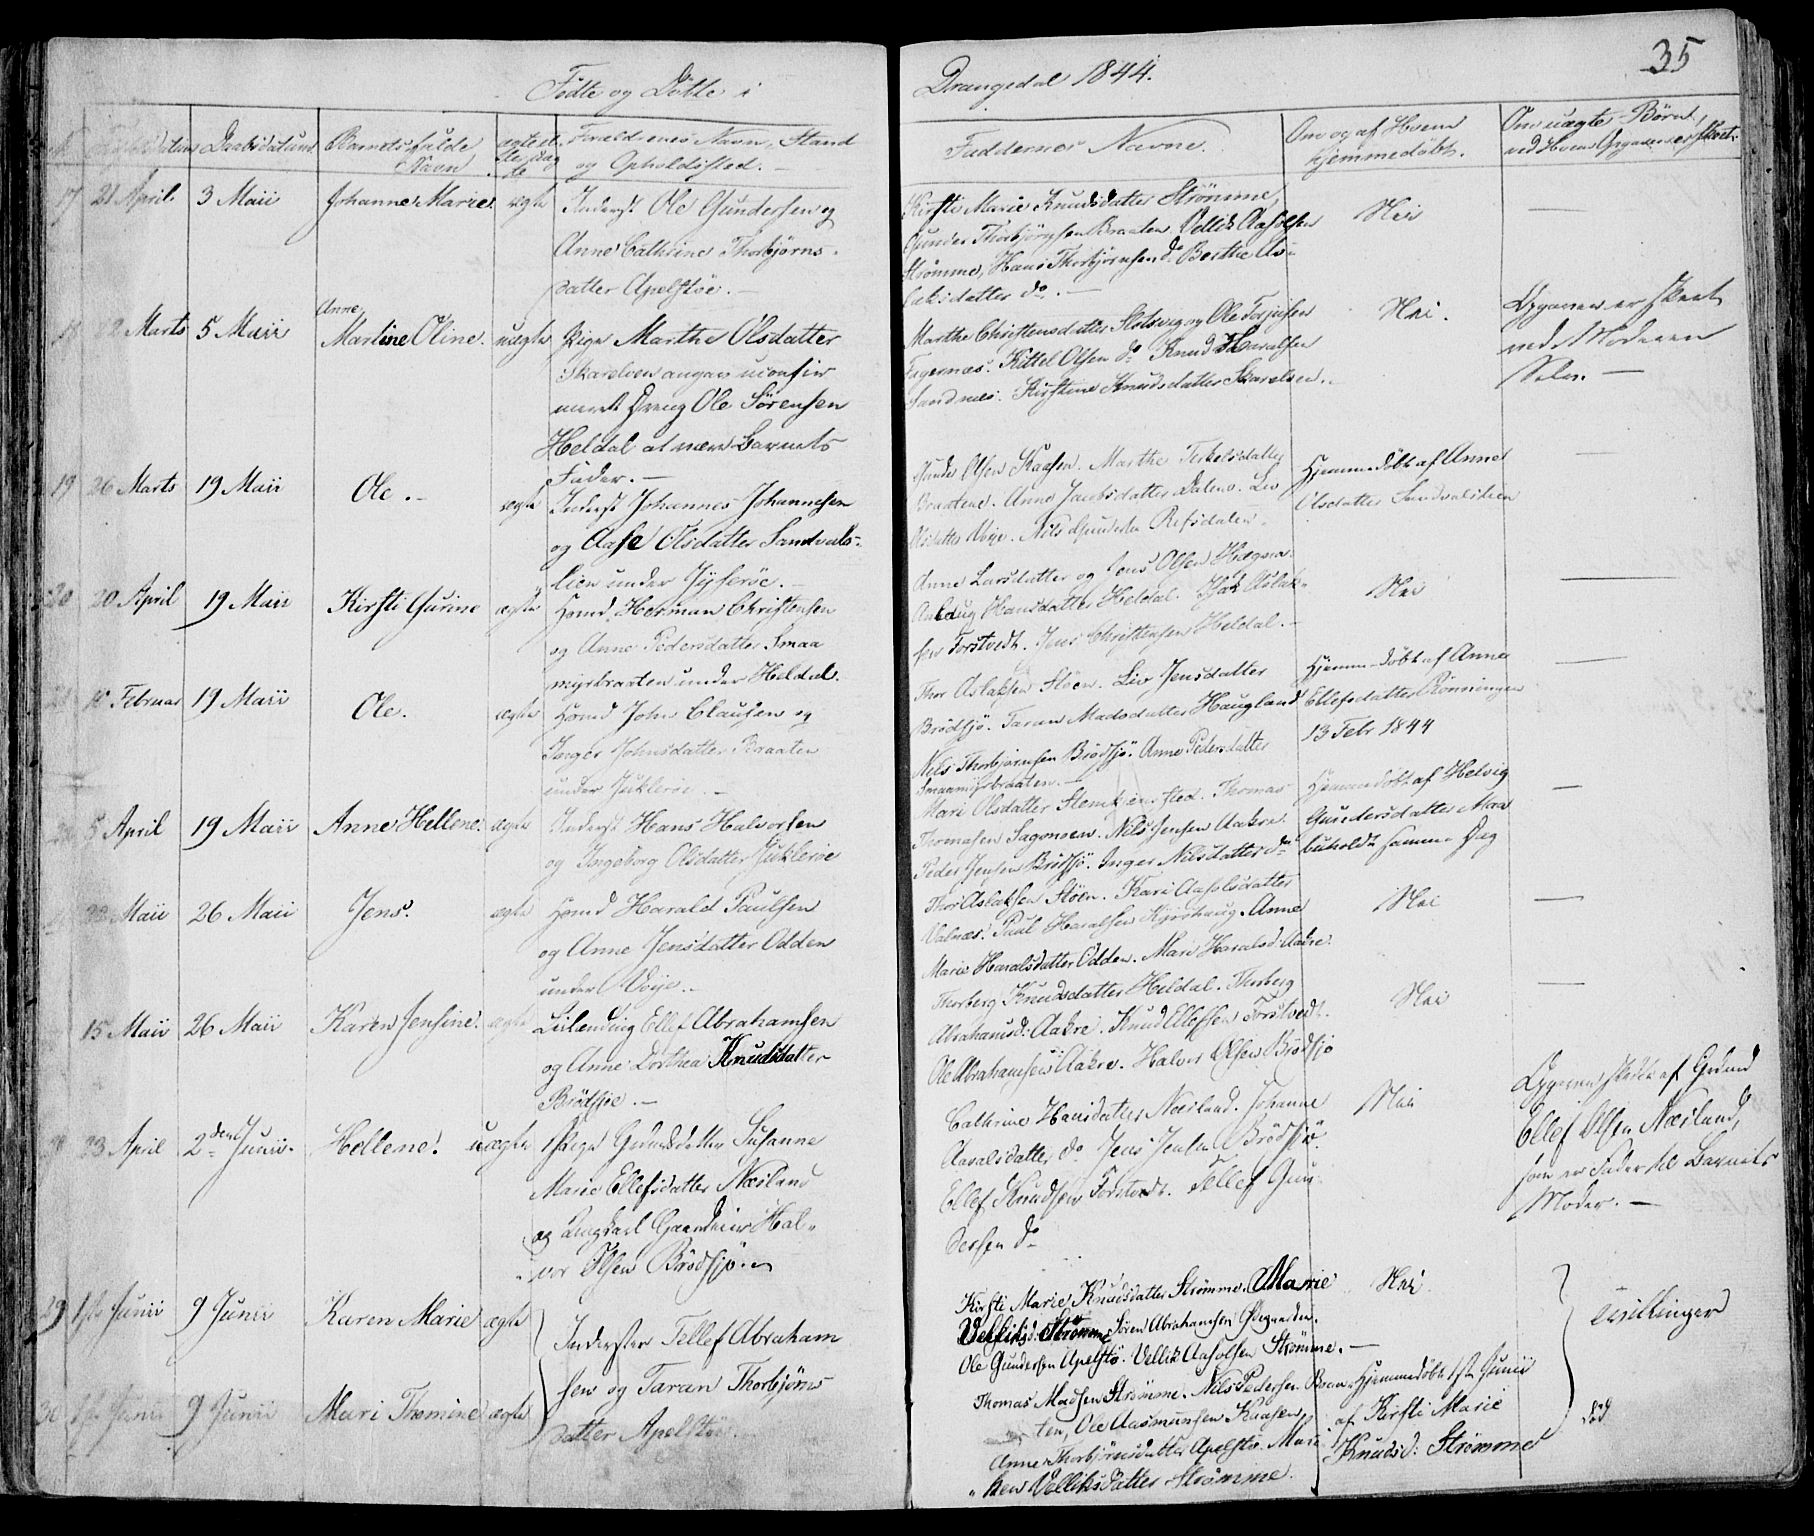 Fødte og Døbte i
Drangedal 1844.
35
Daabsdatum
Barnets fulde
Navn
Forældrenes Navn, Stand
og Opholdssted.
Faddernes Navne.
Om og af Hvem
hjemmedøbt.
Om uægte Børn,
ved Hvem Opgaven er skeet.
17 21 April 3 Maii Johanne Marie. ægte Inderst Ole Gundersen og
Anne Cathrine Thorbjørns-
datter Apelstøe.
Kirsti Marie Knudsdatter Strømme,
Gunder Thorbjørnsen Braaten, Vellik Aasolsen
Strømme, Hans Thorbjørnsen do Berthe As-
laksdatter do.
Nei
Marts 5 Maii Anne
Martine Oline. uægte Pige Marthe Olsdatter
Skarelven angav uconfir
meret Dreng Ole Sørensen
Heldal at være Barnets
Fader.
Marthe Christensdatter Slotsvig og Ole Torjusen
Fagernæs. Kittel Olsen do Knud Haralsen
Sandnæs. Kirstine Knudsdatter Skarelven.
Nei.
Opgaven er skeet
ved Moderen
Selv.
19 26 Marts 19 Maii Ole. ægte Inderst Johannes Johannesen
og Aase Olsdatter Sandvals-
lien under
Gunder Olsen Kaasen. Marthe Terkelsdatter
Braatene. Anne Jacobsdatter Dalene. Liv
Olsdatter Voje. Nils Gundersen Refsdalen.
Hjemmedøbt af Anne
Olsdatter Sandvalslien
20 20 April 19 Maii Kirsti Gurine ægte Huusmd Herman Christensen
og Anne Pedersdatter Smaa
myrbraaten under Heldal.
Anne Larsdatter og Jens Olsen
Aslaug Hansdatter Heldal. Isak Aslak-
sen Torstvedt. Jens Christensen Heldal.
Nei
21 Februar 19 Maii Ole. ægte Huusmd John Clausen og
Inger Johnsdatter Braaten
under Juklerøe.
Thor Aslaksen Støen. Liv Jensdatter
Brødsjø. Taran Madsdatter Haugland
Nils Thorbjørnsen Brødsjø. Anne Pedersdatter
Smaamyrbraaten.
Hjemmedøbt af Anne
Ellefsdatter Rønningen
13 Febr 1844
5 April 19 Maii Anne Hellene. ægte Inderst Hans Halvorsen
og Ingeborg Olsdatter Juklerøe
Mari Olsdatter Thomas
Thomasen Sagmoen. Nils Jensen Aakre.
Peder Jensen Brødsjø. Inger Nilsdatter do
Hjemmedøbt af Helvig
Gundersdatter Moe
samme Dag
Maii 26 Maii Jens. ægte Huusmd Harald Paulsen
og Anne Jensdatter Odden
under Voje.
Thor Aslaksen Støen. Kari Aasolsdatter
Valnæs. Paul Haralsen Anne
Marie Haralsdatter Odden. Mari Haralsd: Aakre
Nei
15 Maii 26 Maii Karen Jensine. ægte Leilending Ellef Abrahamsen
og Anne Dorthea Knudsdatter
Brødsjøe.
Thorberg Knudsdatter Heldal. Thorberg
Abrahamsd: Aakre. Knud Ellefsen Torstvedt.
Ole Abrahamsen Aakre. Halvor Olsen Brødsjø
Nei
23 April 2den Junii. Hellene. uægte Pige Gaardsdatter Susanne
Marie Ellefsdatter Næsland
og Ungkarl Gaardeier Hal-
vor Olsen Brødsjø.
Cathrine Hansdatter Næsland. Johanne
Aasolsdatter do Jens Jensen Brødsjø
Ellef Knudsen Torstvedt. Tellef Gun-
dersen do
Nei
Opgaven skedte af Grmd
Ellef Olsen Næsland,
som er Fader til Barnets
Moder.
29 1ste Junii 9 Junii Karen Marie ægte
Inderster Tellef Abraham
sen og Taran Thorbjørns
datter Apelstøe.
Kirsti Marie Knudsdatter Strømme. Marie
Velliksd: Strømme Søren Abrahamsen
Ole Gundersen Apelstø. Vellik Aasolsen Strømme.
Nei.
Tvillinger
30 1ste Junii 9 Junii Mari Thomine ægte
Thomas Madsen Strømme. Nils Pedersen Braa-
ten, Ole Aasmunsen Kaasen,
Anne Thorbjørnsdatter Apelstø. Mari-
ken Velliksdatter Strømme.
Hjemmedøbt 1ste Junii
af Kirsti Marie
Knudsd: Strømme
død